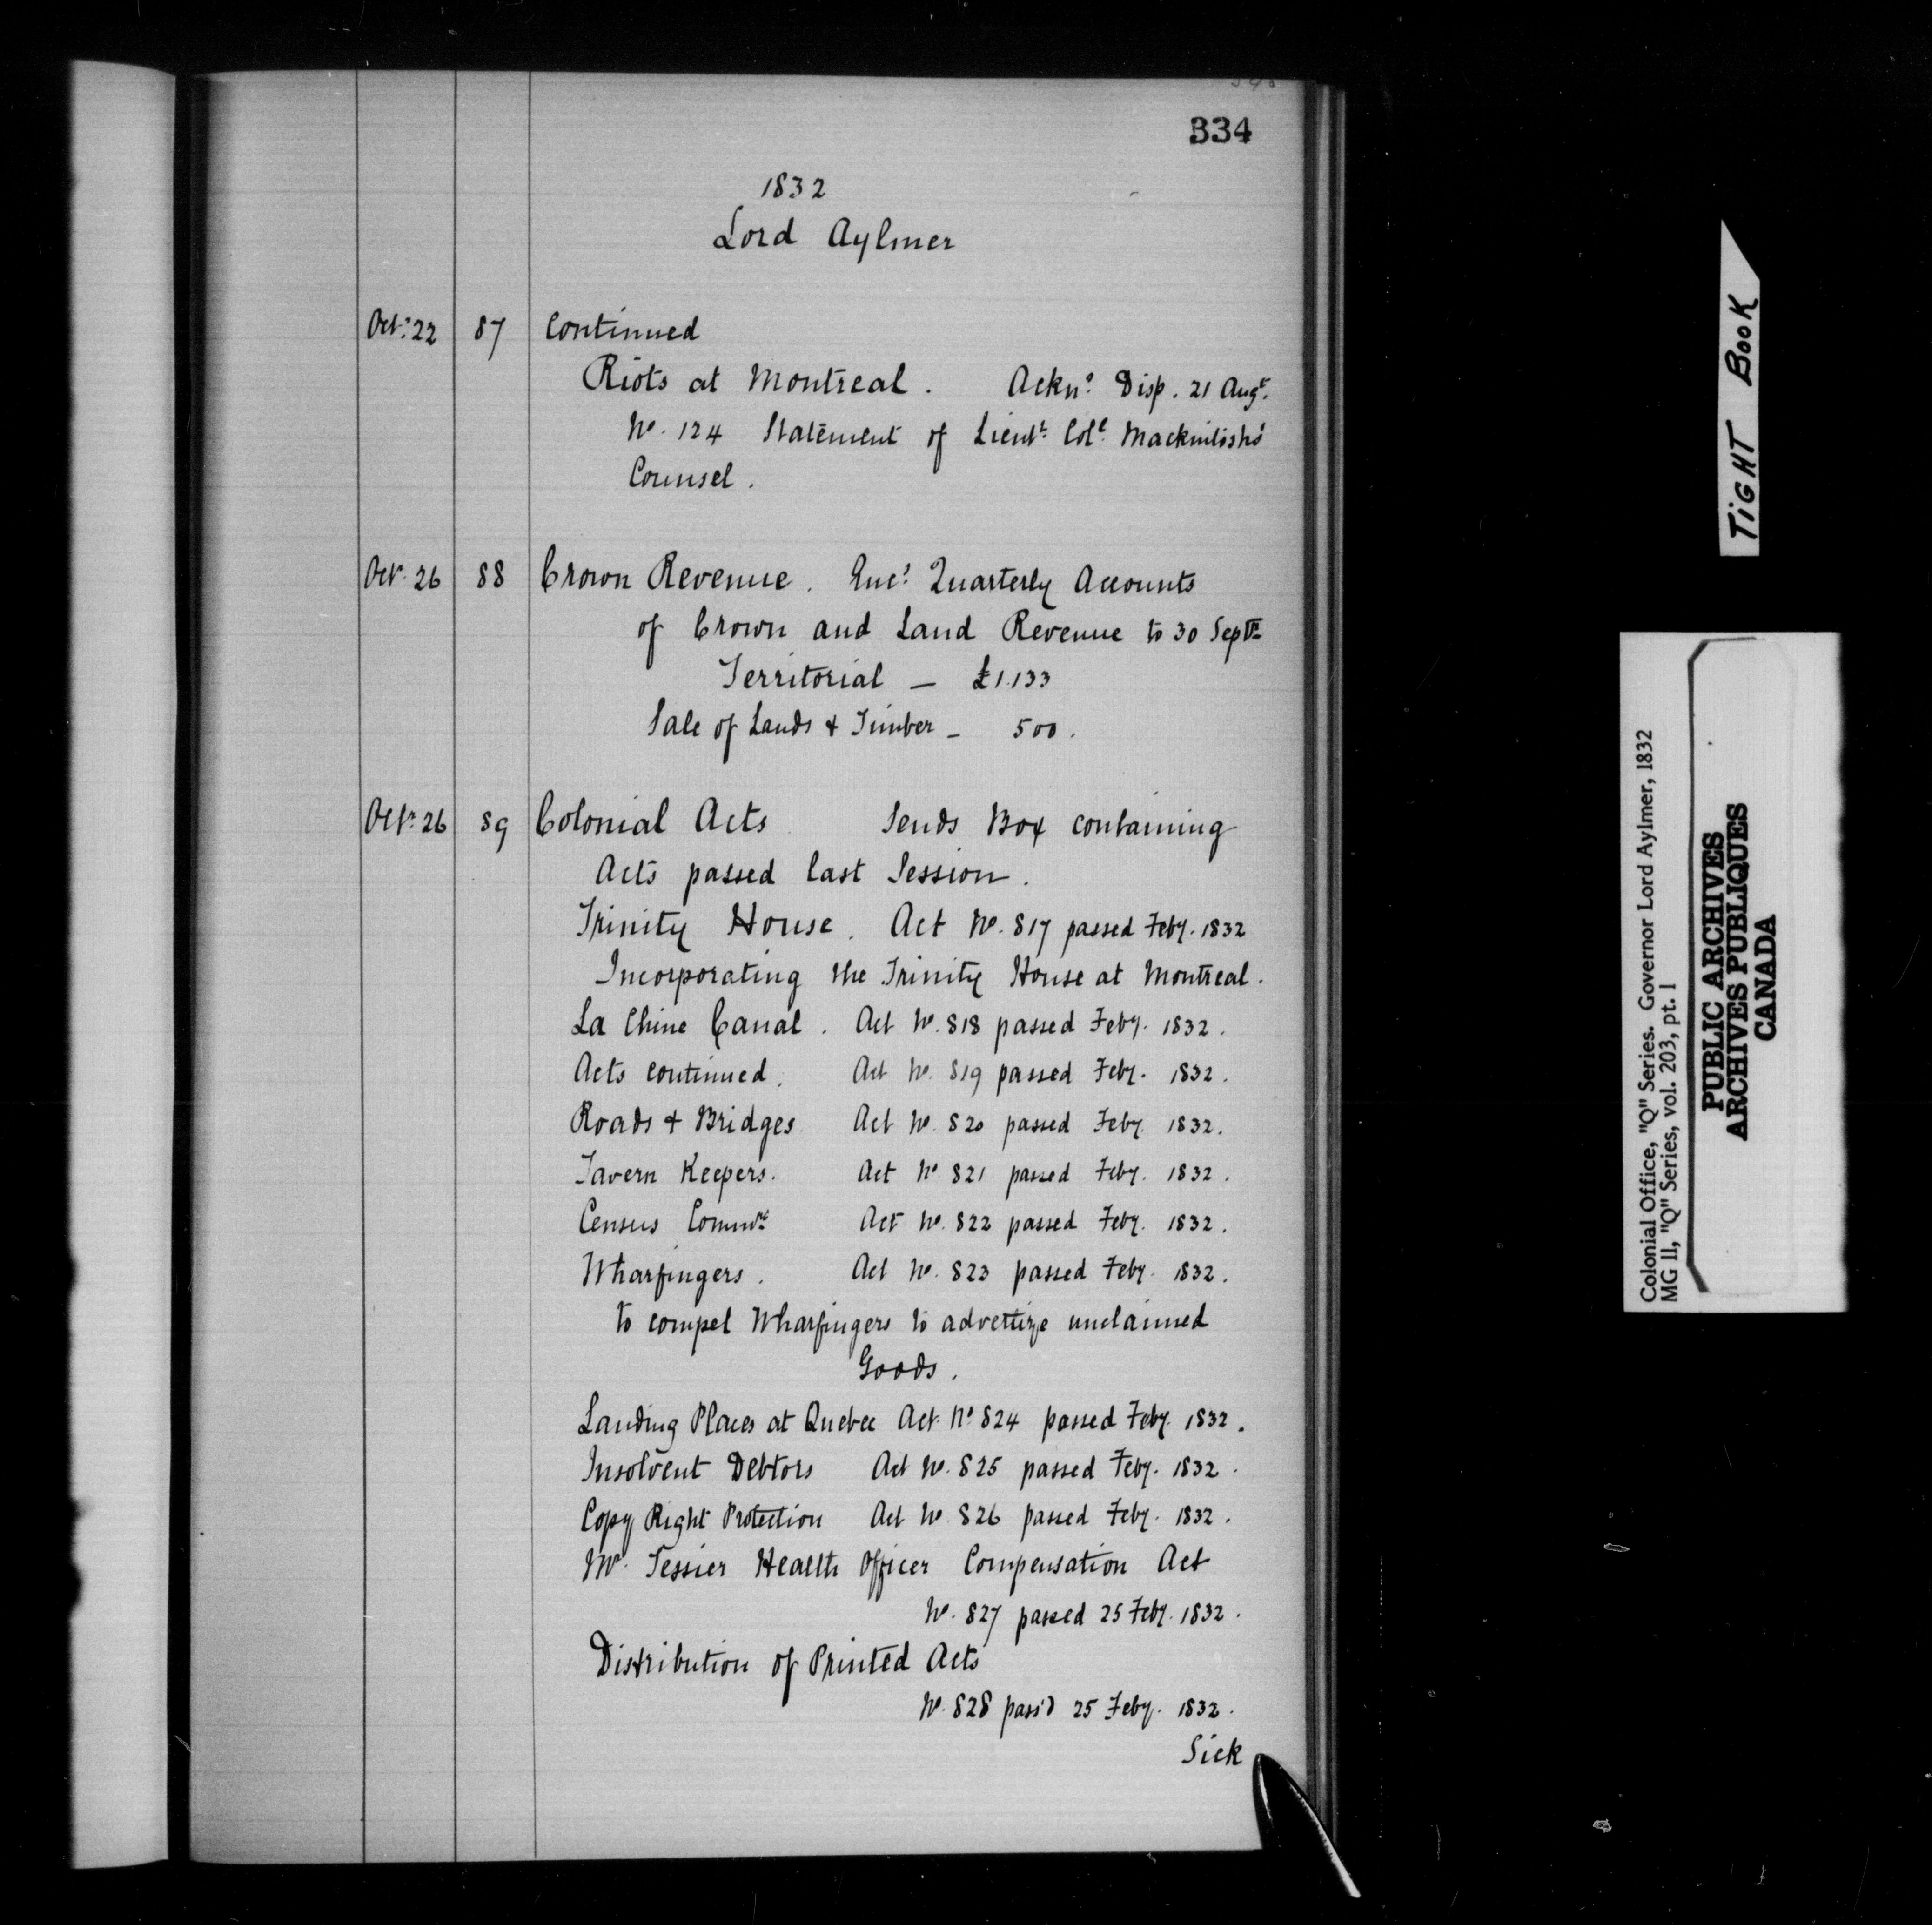 334
1832
Lord Aylmer
Octr. 22 87 Continued
Riots at Montreal. Ackns. Disp. 21 Augt.
No. 124 Statement of Lieut. Coll. Mackintosh's
Counsel.
Octr. 26 88 Crown Revenue. Encs. Quarterly Accounts
of Crown and Land Revenue to 30 Septr.
Territorial — £1.133
Sale of Lands & Timber — 500.
Octr. 26 89 Colonial Acts Sends Box containing
Acts passed last Session.
Trinity House. Act No. 817 passed Feby. 1832
Incorporating the Trinity House at Montreal.
La Chine Canal. Act No. 818 passed Feby. 1832.
Acts continued. Act No. 819 passed Feby. 1832.
Roads & Bridges Act No. 820 passed Feby. 1832.
Tavern Keepers. Act No 821 passed Feby. 1832.
Census Commrs. Act No. 822 passed Feby. 1832.
Wharfingers. Act No. 823 passed Feby. 1832.
to compel Wharfingers to advertize unclaimed
Goods.
Landing Places at Quebec Act No 824 passed Feby. 1832.
Insolvent Debtors Act No. 825 passed Feby. 1832.
Copy Right Protection Act No. 826 passed Feby. 1832.
Mr. Tessier Health Officer Compensation Act
No. 827 passed 25 Feby. 1832.
Distribution of Printed Acts
No. 828 pass'd 25 Feby. 1832.
Sick
TIGHT BOOK
Colonial Office, "Q" Series. Governor Lord Aylmer, 1832
MG 11, "Q" Series, vol. 203, pt. 1
PUBLIC ARCHIVES
ARCHIVES PUBLIQUES
CANADA